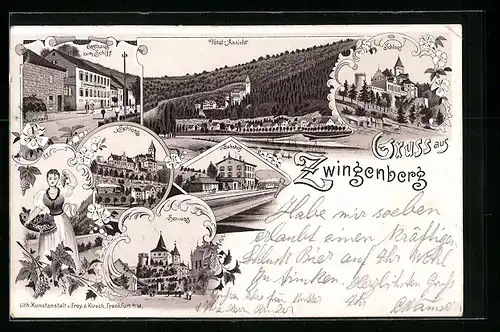 Gasthaus
zum Schiff
Total-Ansicht
Schloss
Gruss aus
Zwingenberg
Schloss
Bahnhof
Habe mir soeben
erlaubt einen kräftigen
Schluck Bier auf Ihr Wohl
zu trinken. Herzlichen Gruß
Ihr
Lith. Kunstanstalt v. Frey & Kirsch, Frankfurt a/M.